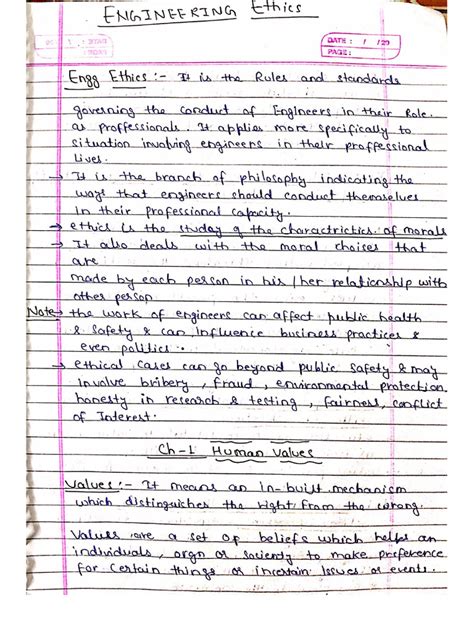 ENGINEERING Ethics
DATE: / /20
PAGE:
Engg Ethics :- It is the Rules and standards
governing the conduct of Engineers in their Role.
as proffessionals. It applies more specifically to
situation involving engineers in their proffessional
lives.
→ It is the branch of philosophy indicating the
ways that engineers should conduct themselves
in their professional capacity.
→ ethics is the study of the charactrictics of morals
→ It also deals with the moral choises that
are
made by each person in his / her relationship with
other person
Note→ the work of engineers can affect public health
& safety & can influence business practices &
even politics.
→ ethical cases can go beyond public safety & may
involve bribery, fraud, environmental protection,
honesty in research & testing, fairness, conflict
of Interest.
Ch-1 Human values
Values :- It means an in-built mechanism
which distinguishes the right from the wrong.
Values are a set of beliefs which helps an
individuals, orgn or society to make preference
for certain things or incertain Issues or events.